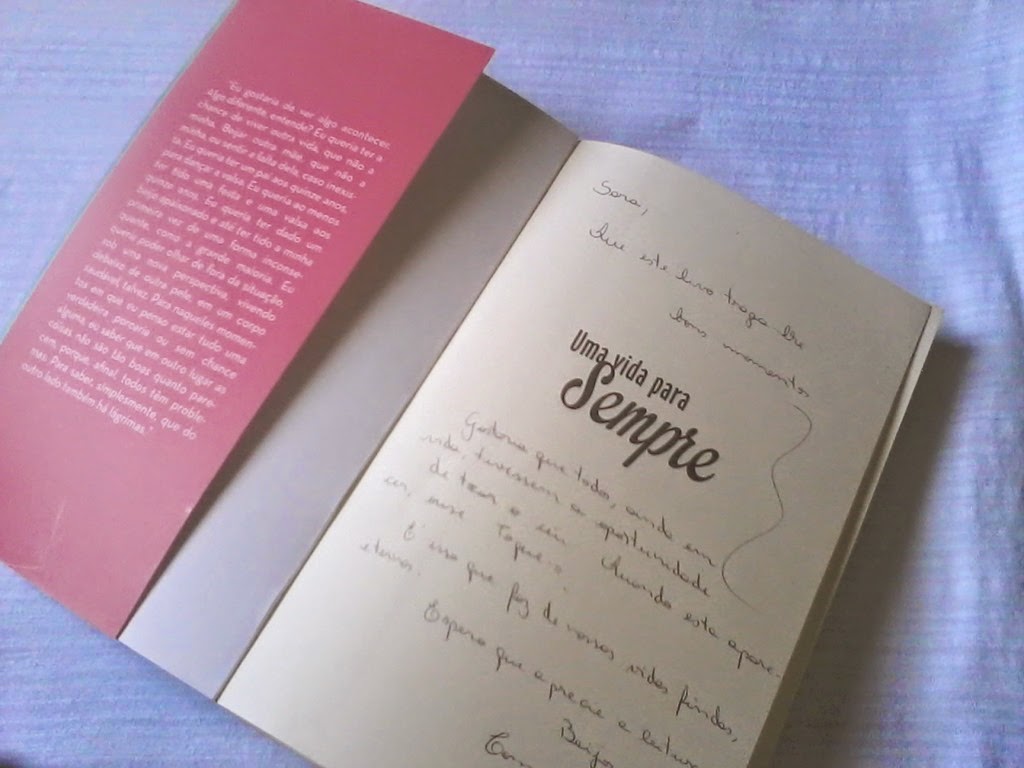 "Eu gostaria de ver algo acontecer.
Algo diferente, entende? Eu queria ter a
chance de viver outra vida, que não a
minha. Beijar outra mãe, que não a
minha, ou sentir a falta dela, caso inexis-
ta. Eu queria ter um pai aos quinze anos,
para dançar a valsa. Eu queria ao menos
ter tido uma festa e uma valsa aos
quinze anos. Eu queria ter dado um
beijo apaixonado e até ter tido a minha
primeira vez de uma forma inconse-
quente, como a grande maioria. Eu
queria poder olhar de fora da situação,
sob uma nova perspectiva, vivendo
debaixo de outra pele, em um corpo
saudável, talvez. Pois naqueles momen-
tos em que eu penso estar tudo uma
verdadeira porcaria ou sem chance
alguma, ou saber que em outro lugar as
coisas não são tão boas quanto pare-
cem, porque, afinal, todos têm proble-
mas. Para saber, simplesmente, que do
outro lado também há lágrimas."
Sora,
Que este livro traga lhe
bons momentos
Uma vida para
Sempre
Gostaria que todos, ainda em
vida, tivessem a oportunidade
de tocar o céu. Quando esta apare-
cer, ouse. Toque-o.
É isso que faz de nossas vidas findas,
eternas.
Espero que aprecie a leitura
Beijos